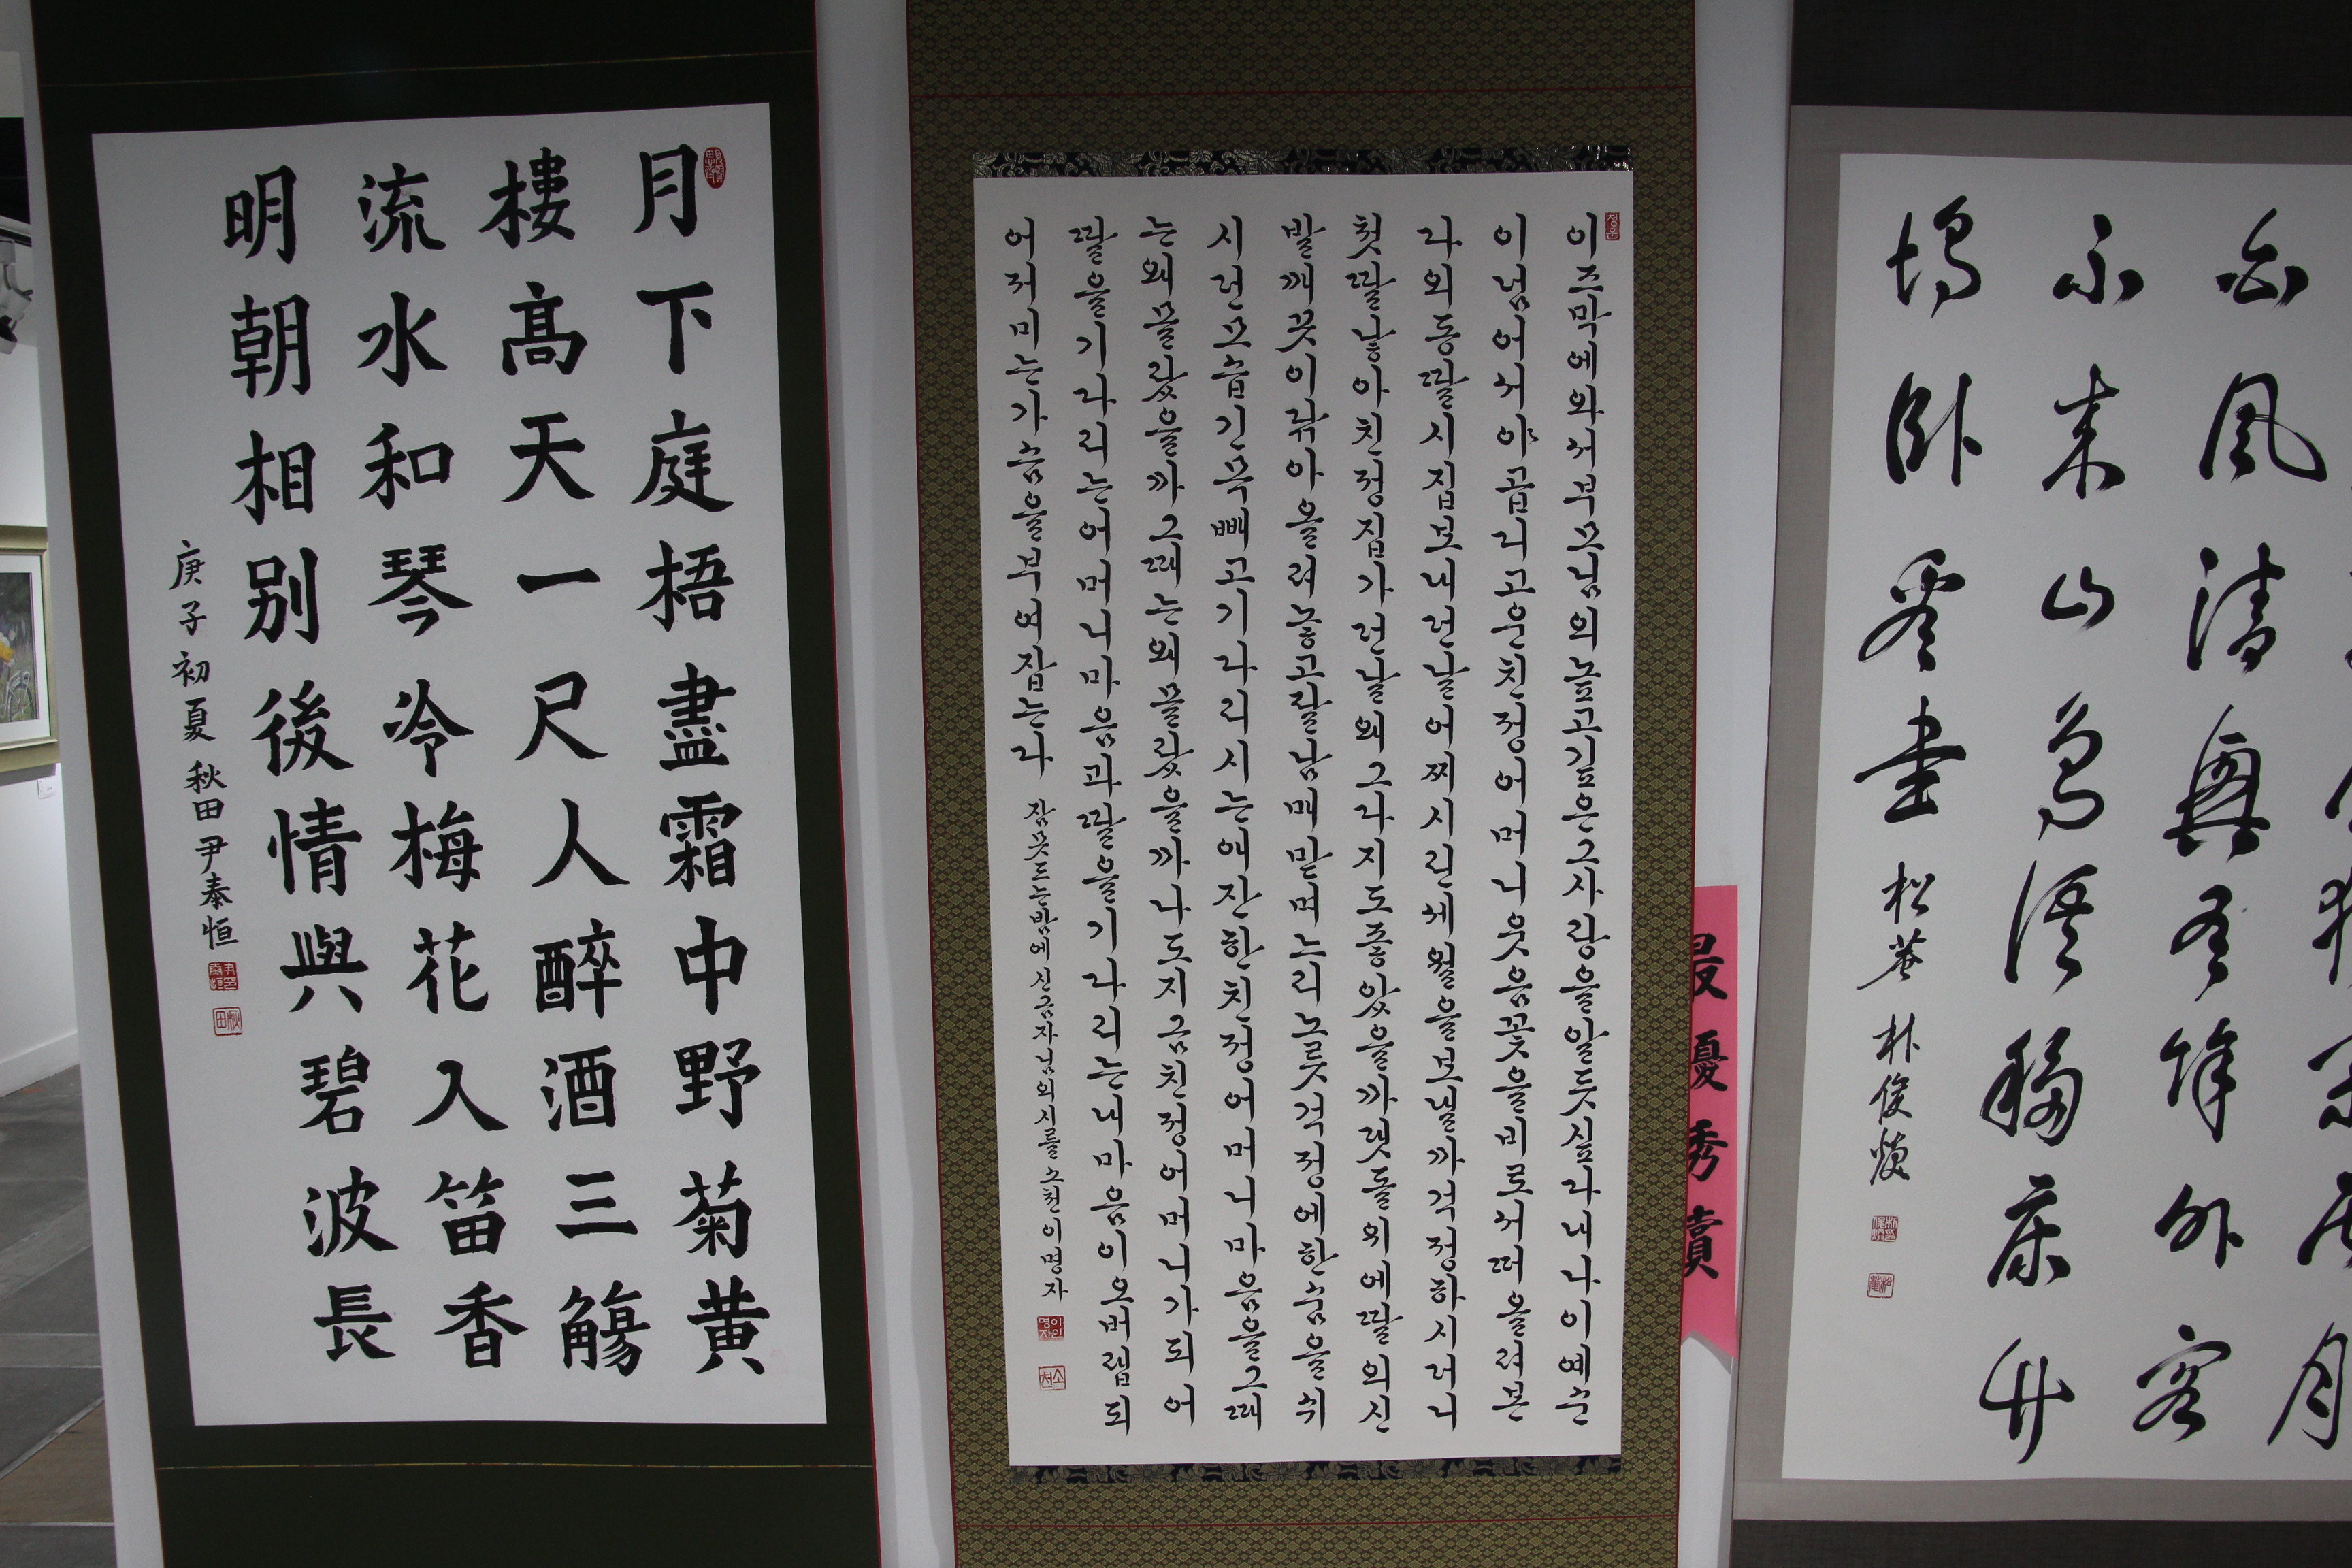 月下庭梧盡霜中野菊黃
樓高天一尺人醉酒三觴
流水和琴冷梅花入笛香
明朝相別後情與碧波長
庚子初夏 秋田 尹泰恒
이즈막에와서부모님의높고깊은그사랑을알듯싶라내나이예순
이넘어서야곱디고운친정어머니웃음꽃을비로서떠올려본
다외동딸시집보내던날어찌시린세월을보낼까걱정하시더니
첫딸낳아친정집가던날왜그라지도좋았을까댓돌위에딸의신
발깨끗이닦아올려놓고팔남매맏며느리노릇걱정에한숨을쉬
시던모습긴목빼고기다리시는애잔한친정어머니마음을그때
는왜몰랐을까그때는왜몰랐을까나도지금친정어머니가되어
딸을기다리는어머니마음과딸을기다리는내마음이오버랩되
어저미는가슴을부여잡는다 잠못드는밤에신금자님의시를 소천 이명자
最優秀賞
月
白風清興有餘外客
不來山鳥語移床竹
塢臥看書 松菴 朴俊煥